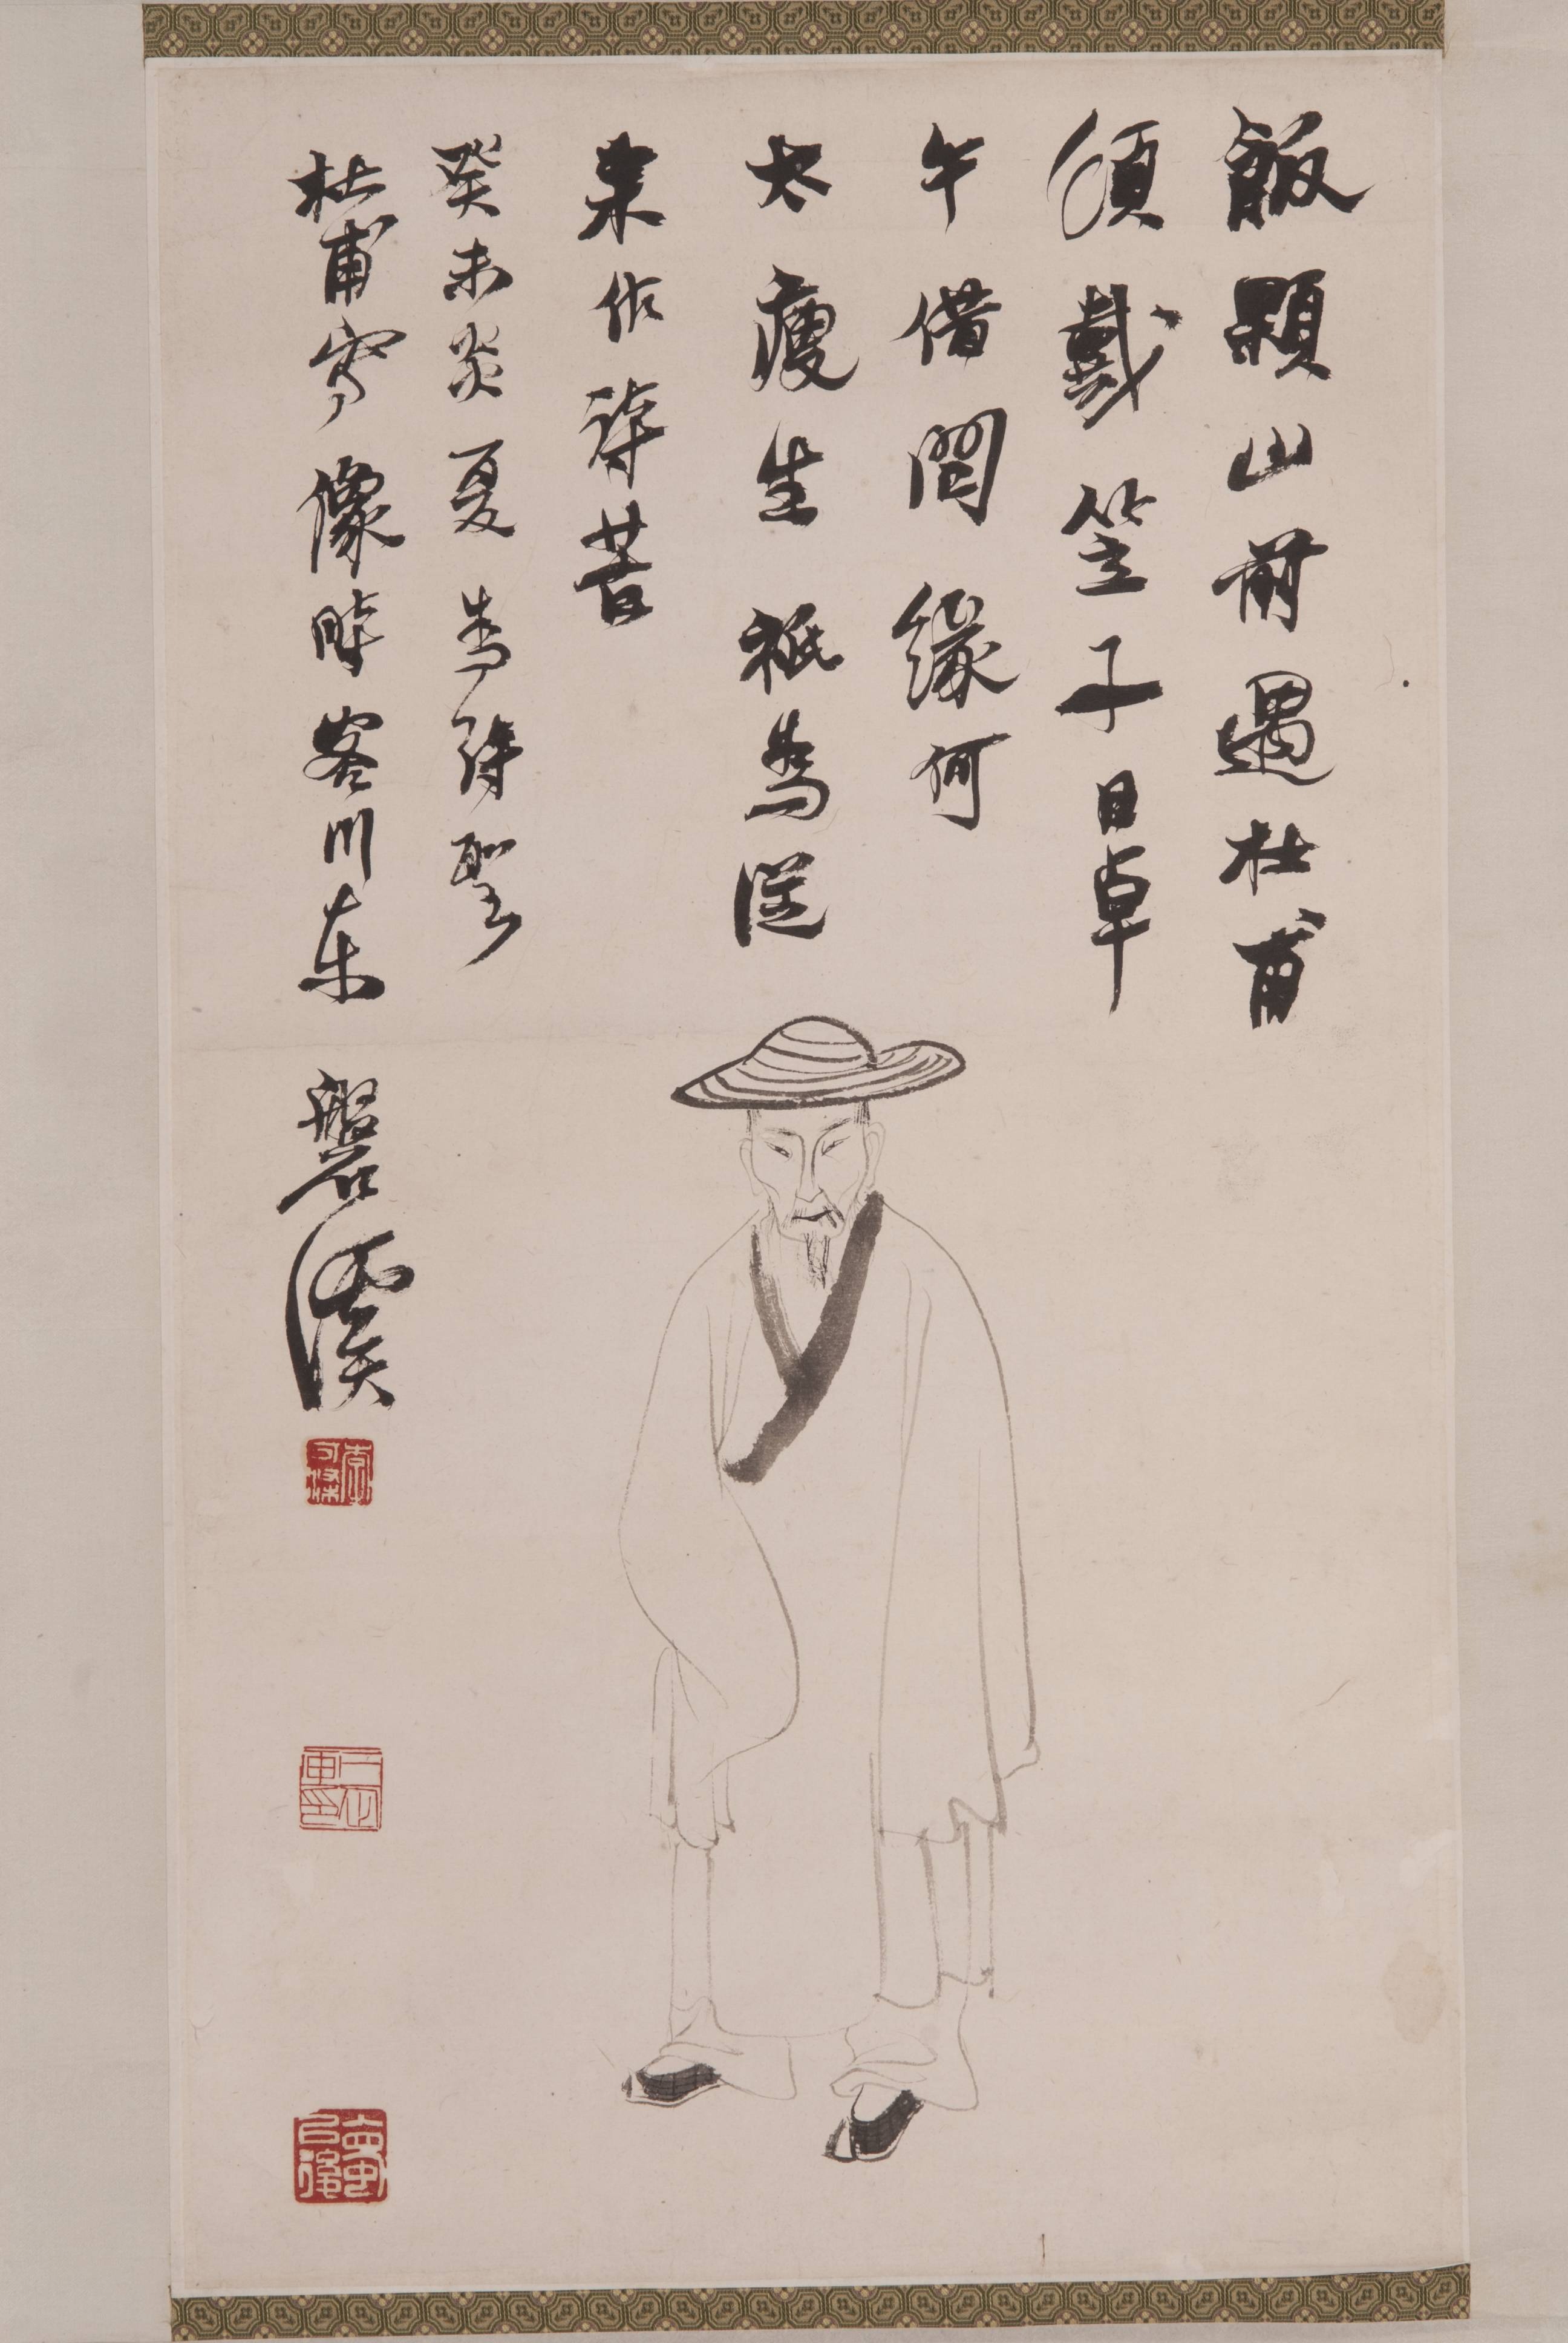 飯顆山前遇杜甫
頭戴笠子日卓
午借問緣何
太瘦生祇為從
來作詩苦
癸未炎夏為詩聖
杜甫寫像時客川東
磐溪